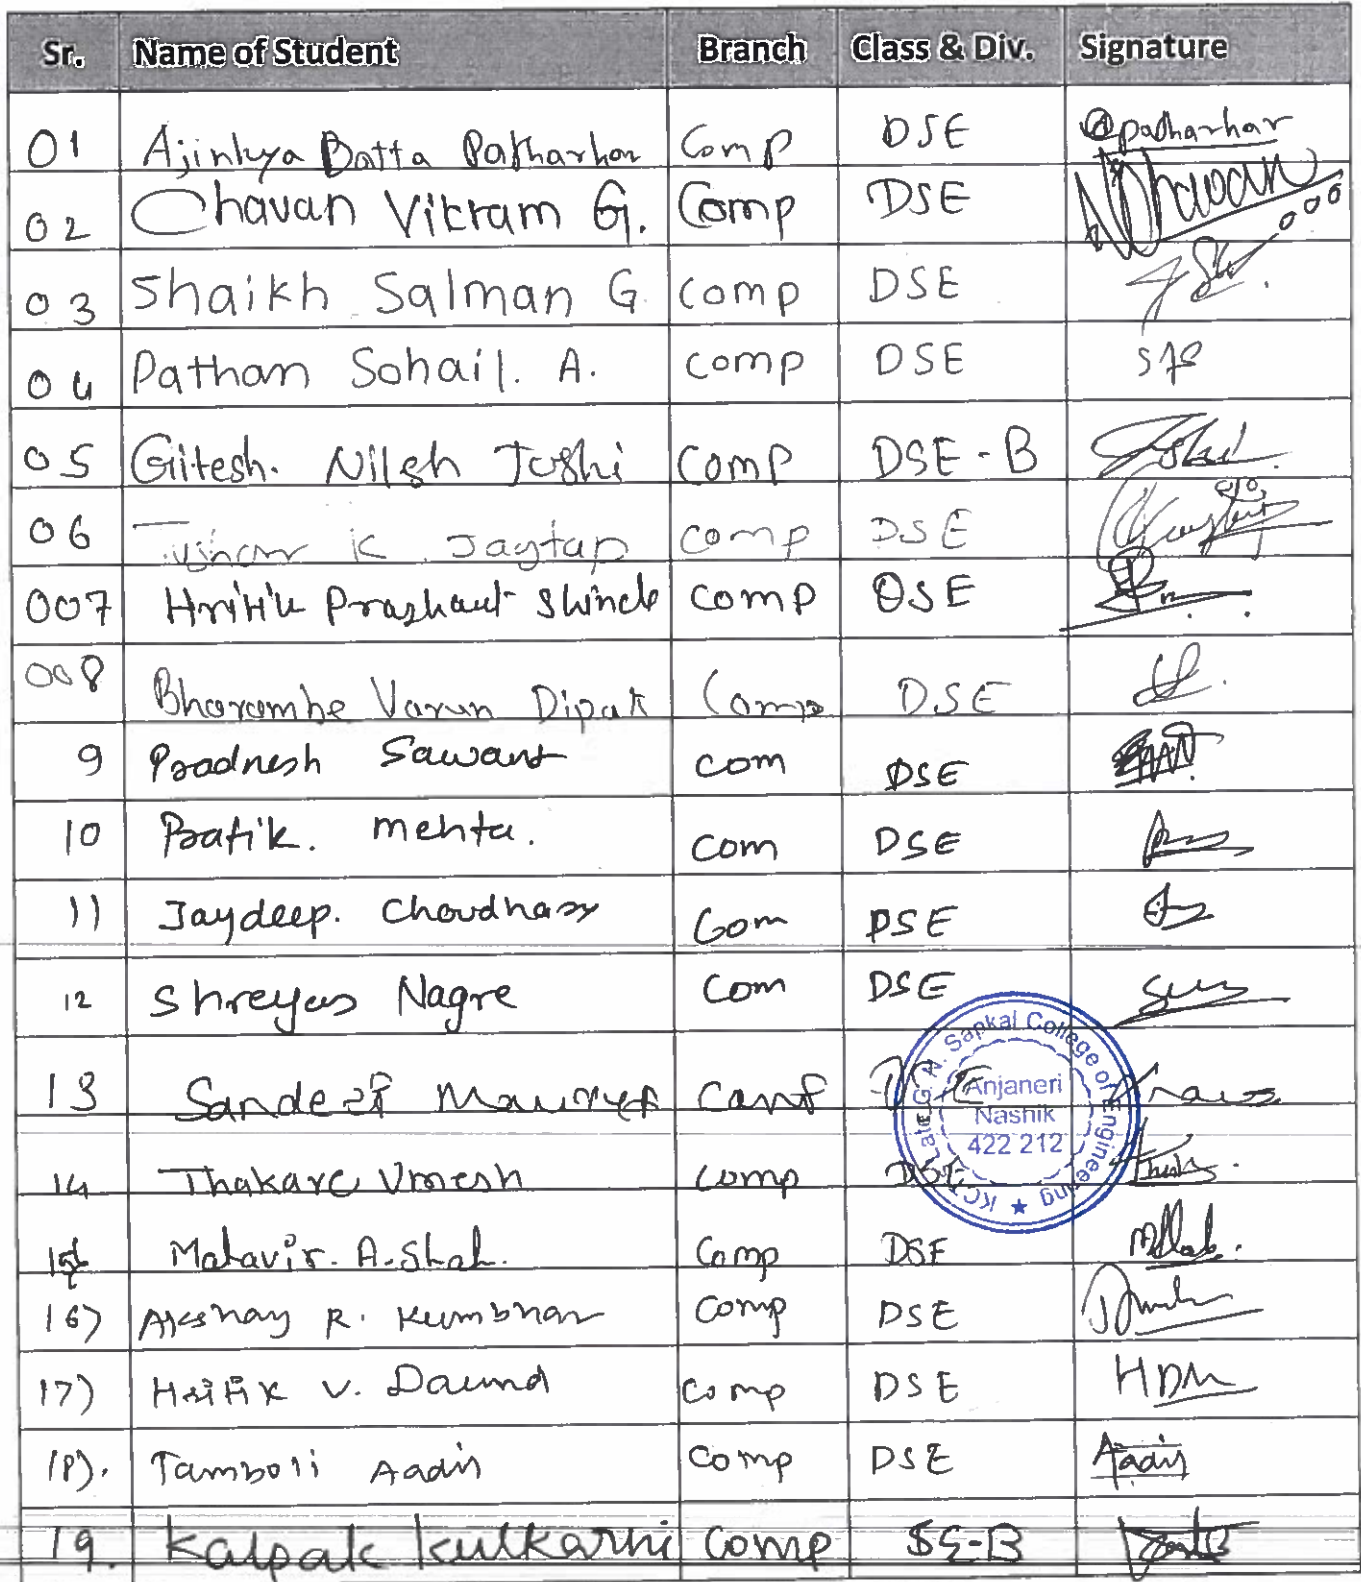 Sr. Name of Student Branch Class & Div. Signature
01 Ajinkya Datta Patharkar Comp DSE @patharkar
02 Chavan Vikram G. Comp DSE
03 Shaikh Salman G. comp DSE
04 Pathan Sohail. A. comp DSE
05 Gitesh. Nilesh Joshi comp DSE-B
06 Tushar K Jagtap comp DSE
007 Hritik Prashant Shinde comp DSE
008 Bharambe Varun Dipak Comp DSE
9 Pradnesh Sawant com DSE
10 Pratik. mehta. com DSE
11 Jaydeep. Choudhary Com DSE
12 Shreyas Nagre Com DSE
13 Sandeep Maurya
14 Thakare Umesh comp DSE
15 Mahavir. A. Shah. Comp DSE
16) Akshay R. Kumbhar comp DSE
17) Hritik V. Daund comp DSE HDM
18). Tamboli Aadis comp DSE Aadis
19. Kalpak Kulkarni comp SE-B
KCT'S Late G. N. Sapkal College of Engineering ★
Anjaneri
Nashik
422 212